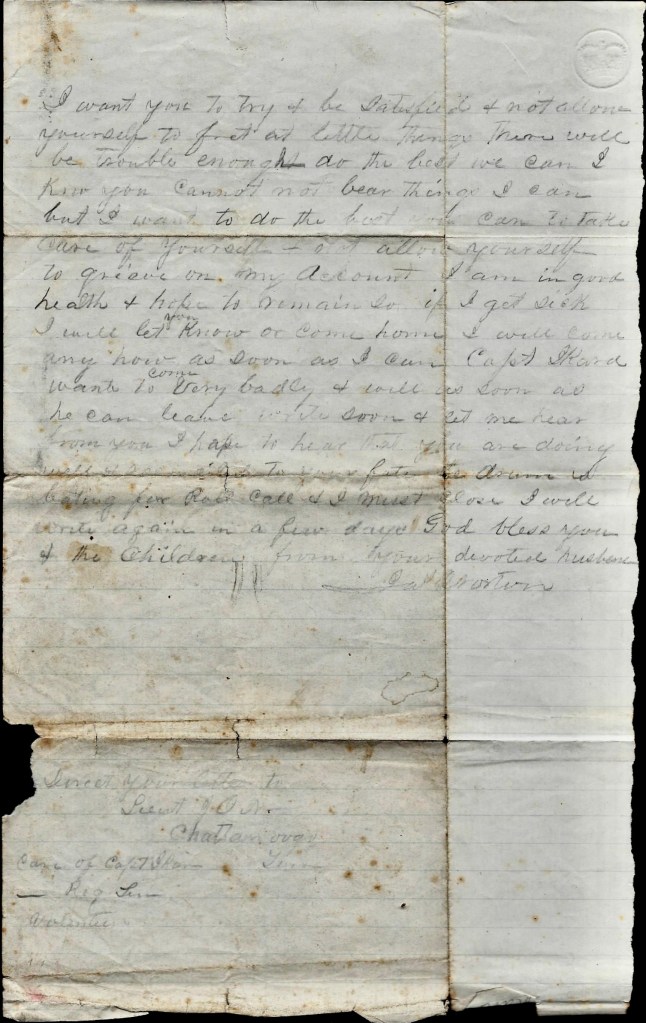 I want you to try & be Satisfi'd & not allow
yourself to fret at little things There will
be trouble enought do the best we can I
Know you cannot not bear things I can
but I want to do the best you can to take
care of yourself & not allow yourself
to grieve on my Account I am in good
health & hope to remain so if I get sick
I will let you Know or come home I will come
any how as soon as I can Capt Ikard
wants to come very badly & will as soon as
he can leave write soon & let me hear
from you I hope to hear that you are doing
well to your drum is
beating for Role Call & I must close I will
write again in a few days God bless you
& the Children from your devoted husban
Norton
Direct your letter to
Lieut J N
Chattanooga
Care of Capt Ikar Tenn
Reg Ten
Volentee